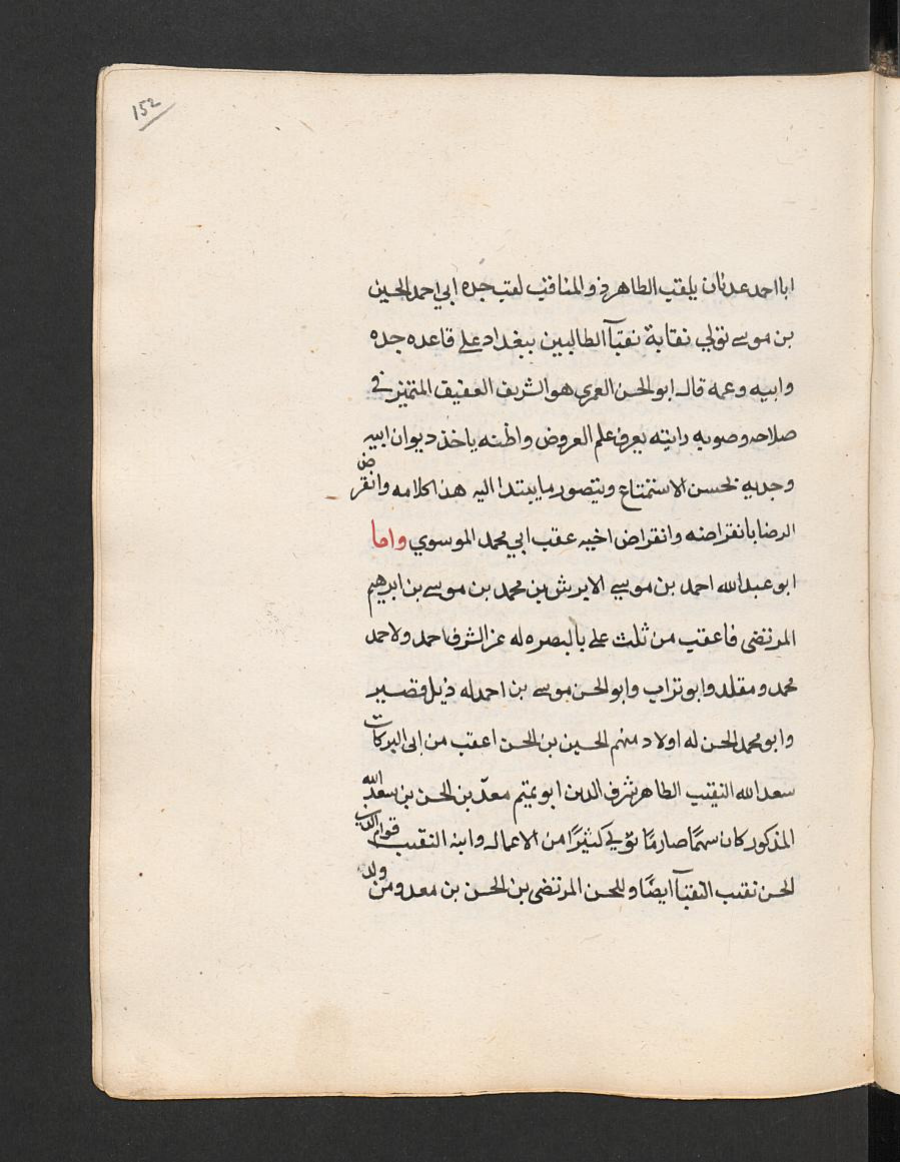 152
ابا احمد عدنان يلقب الطاهر ذو المناقب لقب جده ابي احمد الحسين
بن موسى تولي نقابة نقبآ الطالبين ببغداد على قاعده جده
وابيه وعمه قال ابو الحسن العمري هو الشريف العفيف المتميز في
صلاحه وصونه رايته يعرف علم العروض واظنه ياخذ ديوان ابيه
وجديه بحسن الاستمتاع ويتصور ما يبتدا اليه هذا كلامه وانقرض
الرضا بانقراضه وانقراض اخيه عقب ابي محمد الموسوي واما
ابو عبد الله احمد بن موسى الابرش بن محمد بن موسى بن ابرهيم
المرتضى فاعقب من ثلث علي بالبصره له عز الشرف احمد ولاحمد
محمد ومقلد وابو تراب وابو الحسن موسى بن احمد له ذيل قصير
وابو محمد الحسن له اولاد منهم الحسين بن الحسن اعقب من ابى البركات
سعد الله النقيب الطاهر شرف الدين ابو تميم معدّ بن الحسن بن سعد الله
المذكور كان سهمًا صارمًا تولي كثيرًا من الاعمال وابنه النقيب قوام الدين
الحسن نقيب النقبآ ايضًا وللحسن المرتضى بن الحسن بن معد ومن ولد